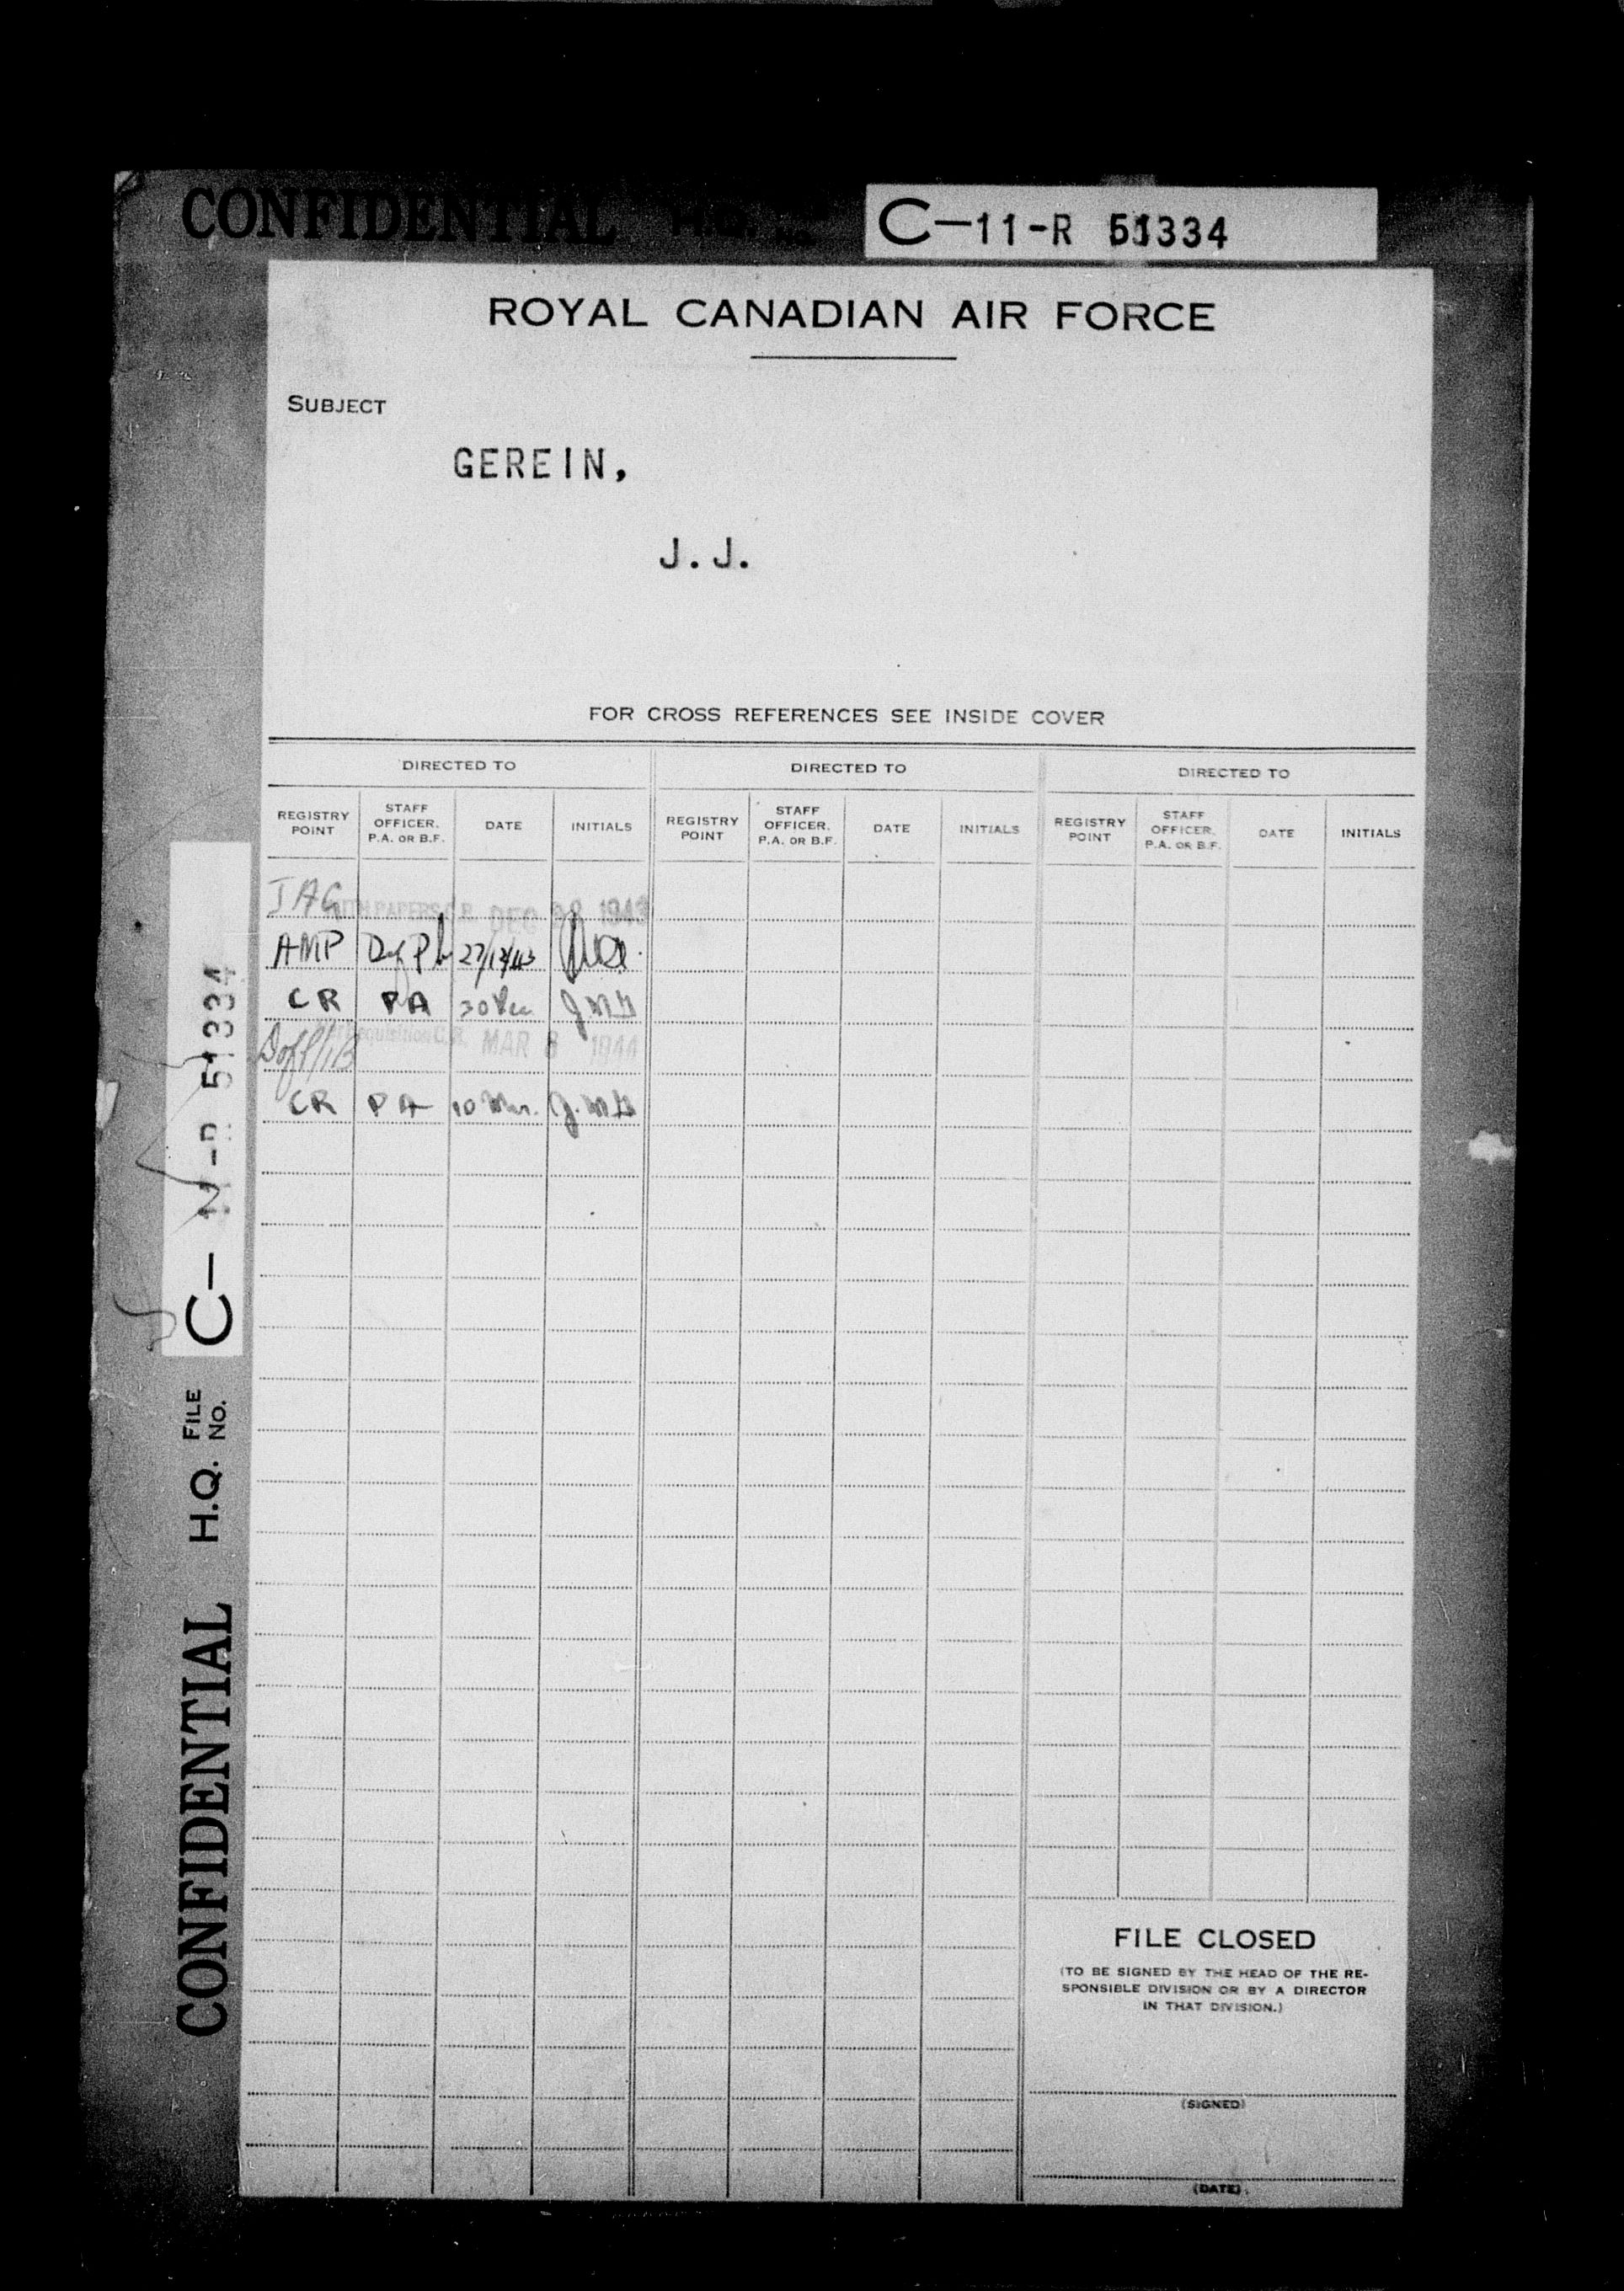 CONFIDENTIAL H.Q. C-11-R 51334
ROYAL CANADIAN AIR FORCE
SUBJECT
GEREIN,
J.J.
FOR CROSS REFERENCES SEE INSIDE COVER
DIRECTED TO DIRECTED TO DIRECTED TO
REGISTRY POINT STAFF OFFICER, P.A. OR B.F. DATE INITIALS REGISTRY POINT STAFF OFFICER, P.A. OR B.F. DATE INITIALS REGISTRY POINT STAFF OFFICER, P.A. OR B.F. DATE INITIALS
JAG WITH PAPERS C.R. DEC 1943
AMP 27/12/43
CR PA 30 Dec
Requisition C.R. MAR 8 1944
CR PA 10 Mar.
FILE CLOSED
(TO BE SIGNED BY THE HEAD OF THE RE-
SPONSIBLE DIVISION OR BY A DIRECTOR
IN THAT DIVISION.)
(SIGNED)
(DATE)
CONFIDENTIAL H.Q. FILE NO. C- 51334